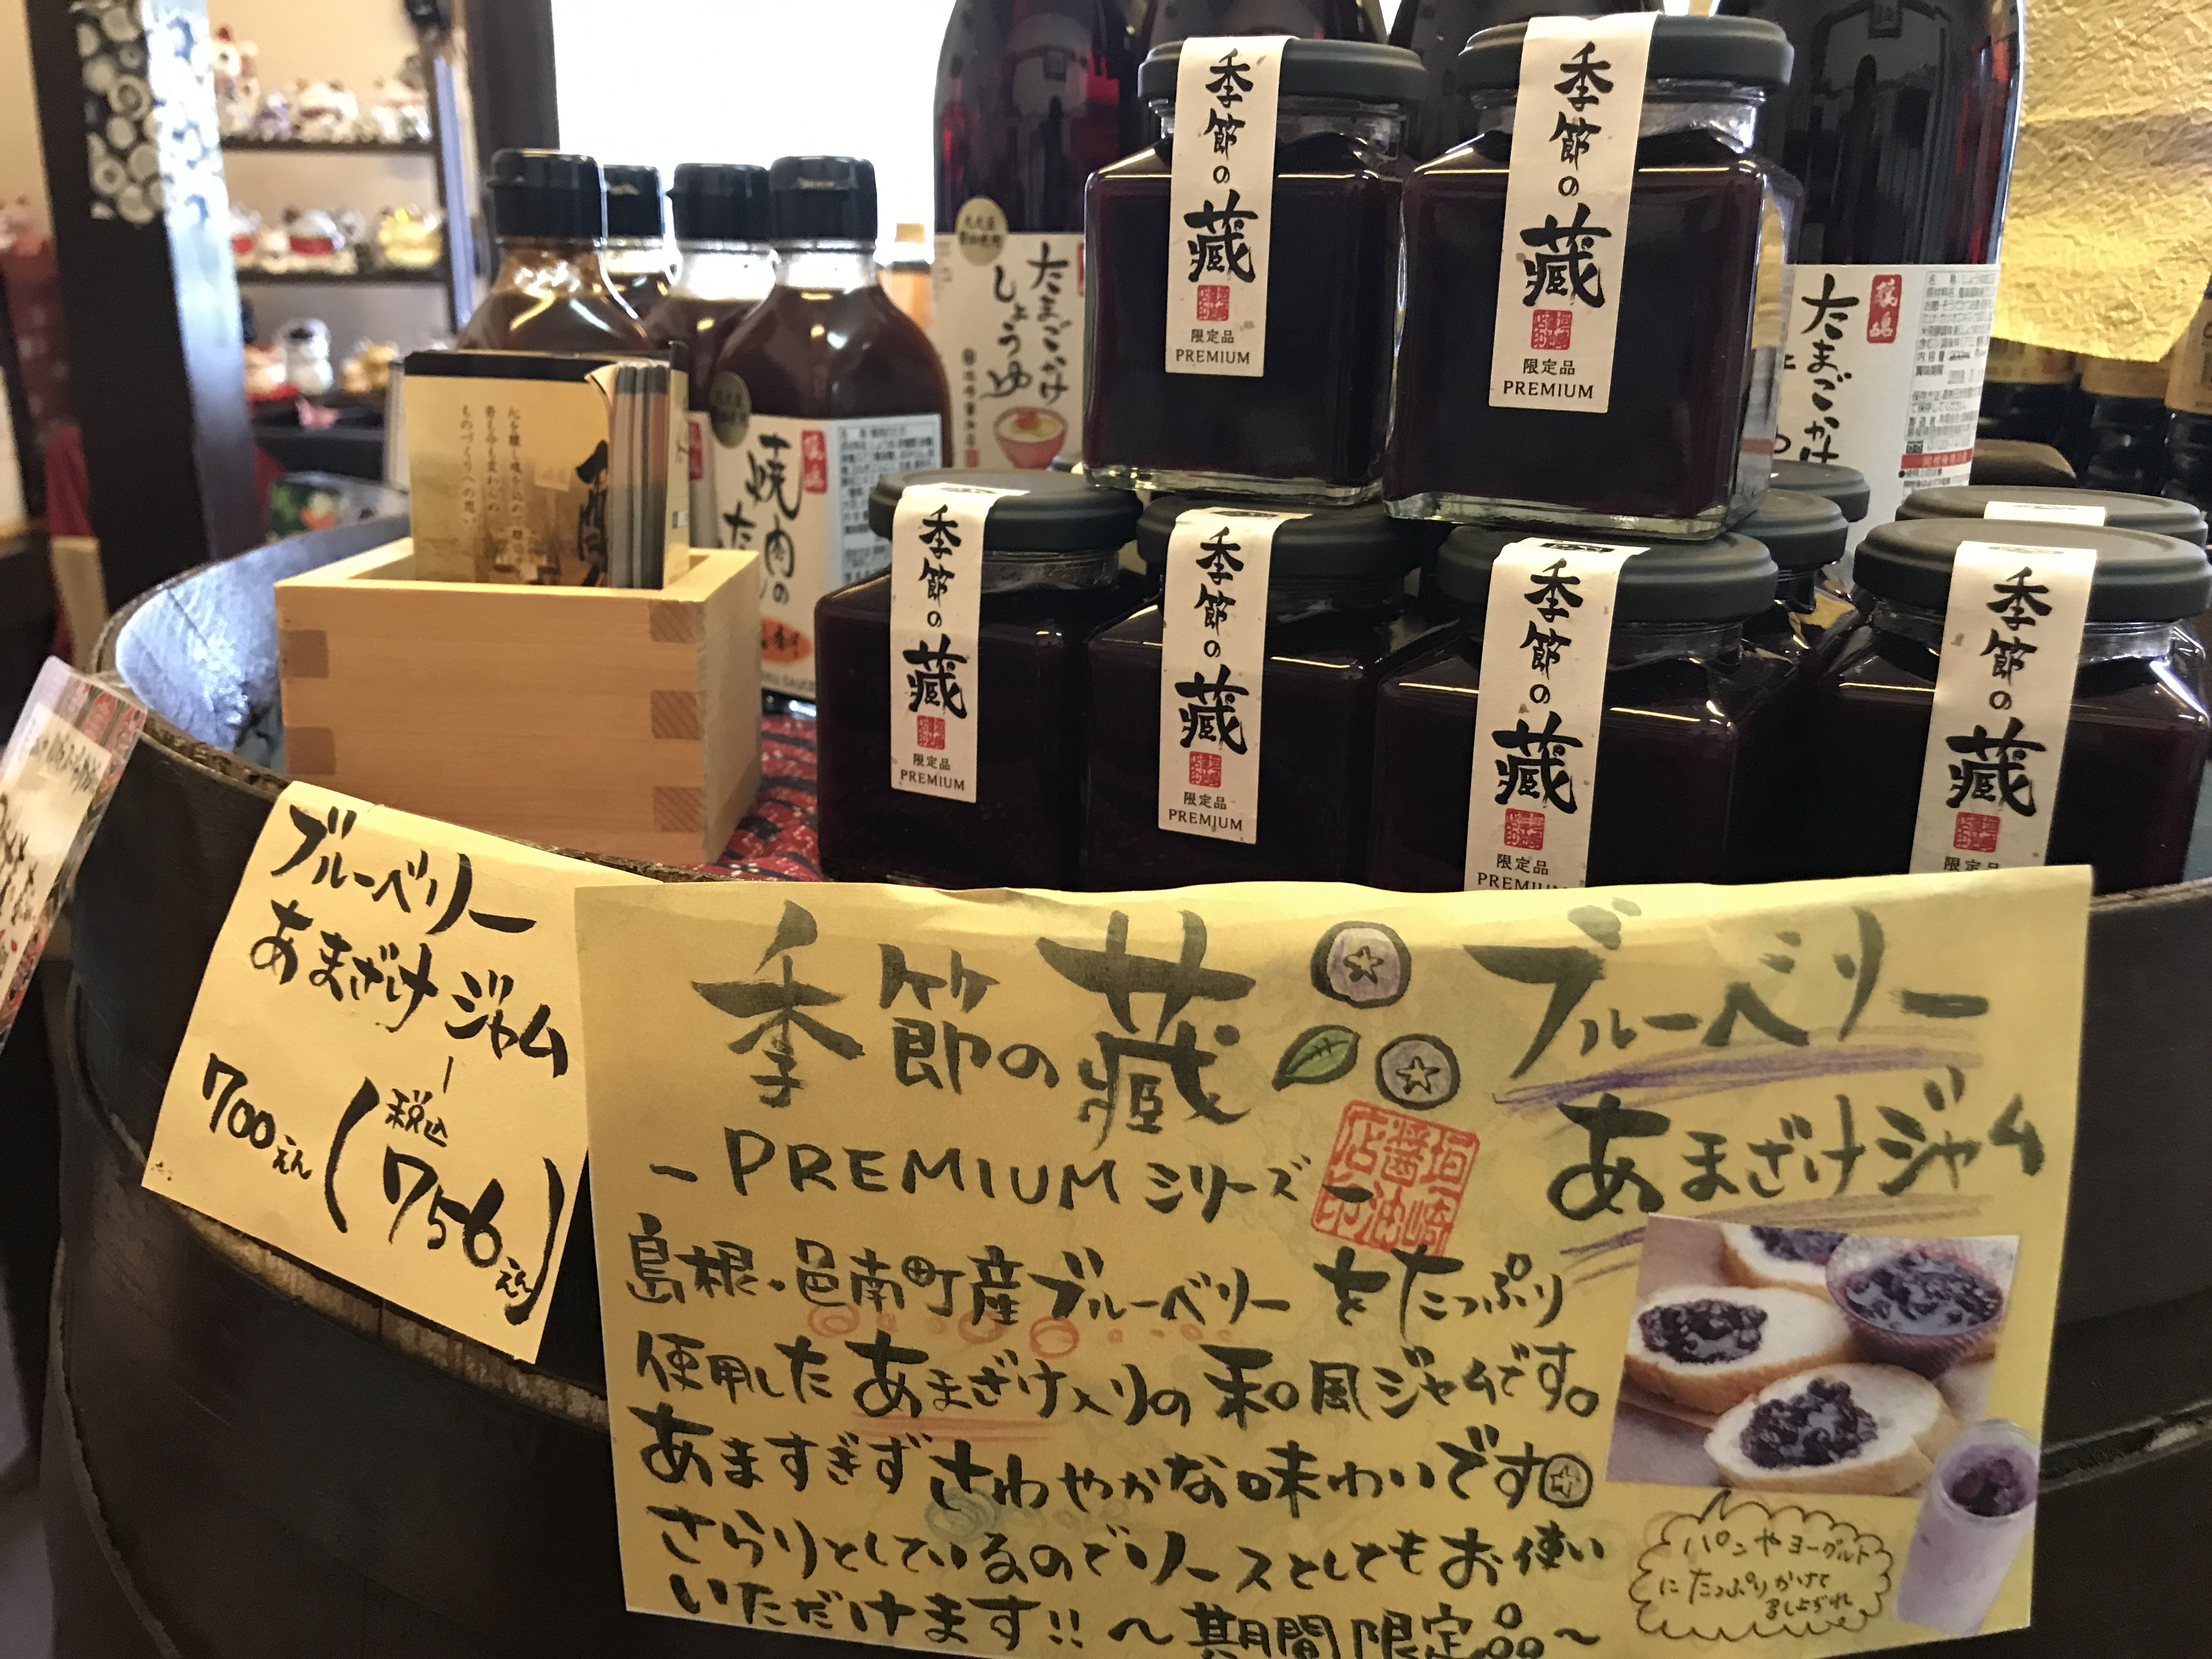 季節の藏
限定品
PREMIUM
季節の藏
限定品
PREMIUM
たまごかけ
しょうゆ
たまごかけ
焼肉の
た
心を醸し魂を込めて醸
昔も今も変わらぬ
ものづくりへの思い
季節の藏
限定品
PREMIUM
季節の藏
限定品
PREMIUM
季節の藏
限定品
PREMIUM
季節の藏
限定品
ブルーベリー
あまざけジャム
700えん(税込756えん)
季節の藏
ブルーベリー
あまざけジャム
-PREMIUMシリーズ-
垣崎醤油店印
島根・邑南町産ブルーベリーをたっぷり
使用したあまざけ入りの和風ジャムです。
あますぎずさわやかな味わいです
さらりとしているのでソースとしてもお使い
いただけます!!～期間限定品～
パンやヨーグルト
にたっぷりかけて
召し上がれ